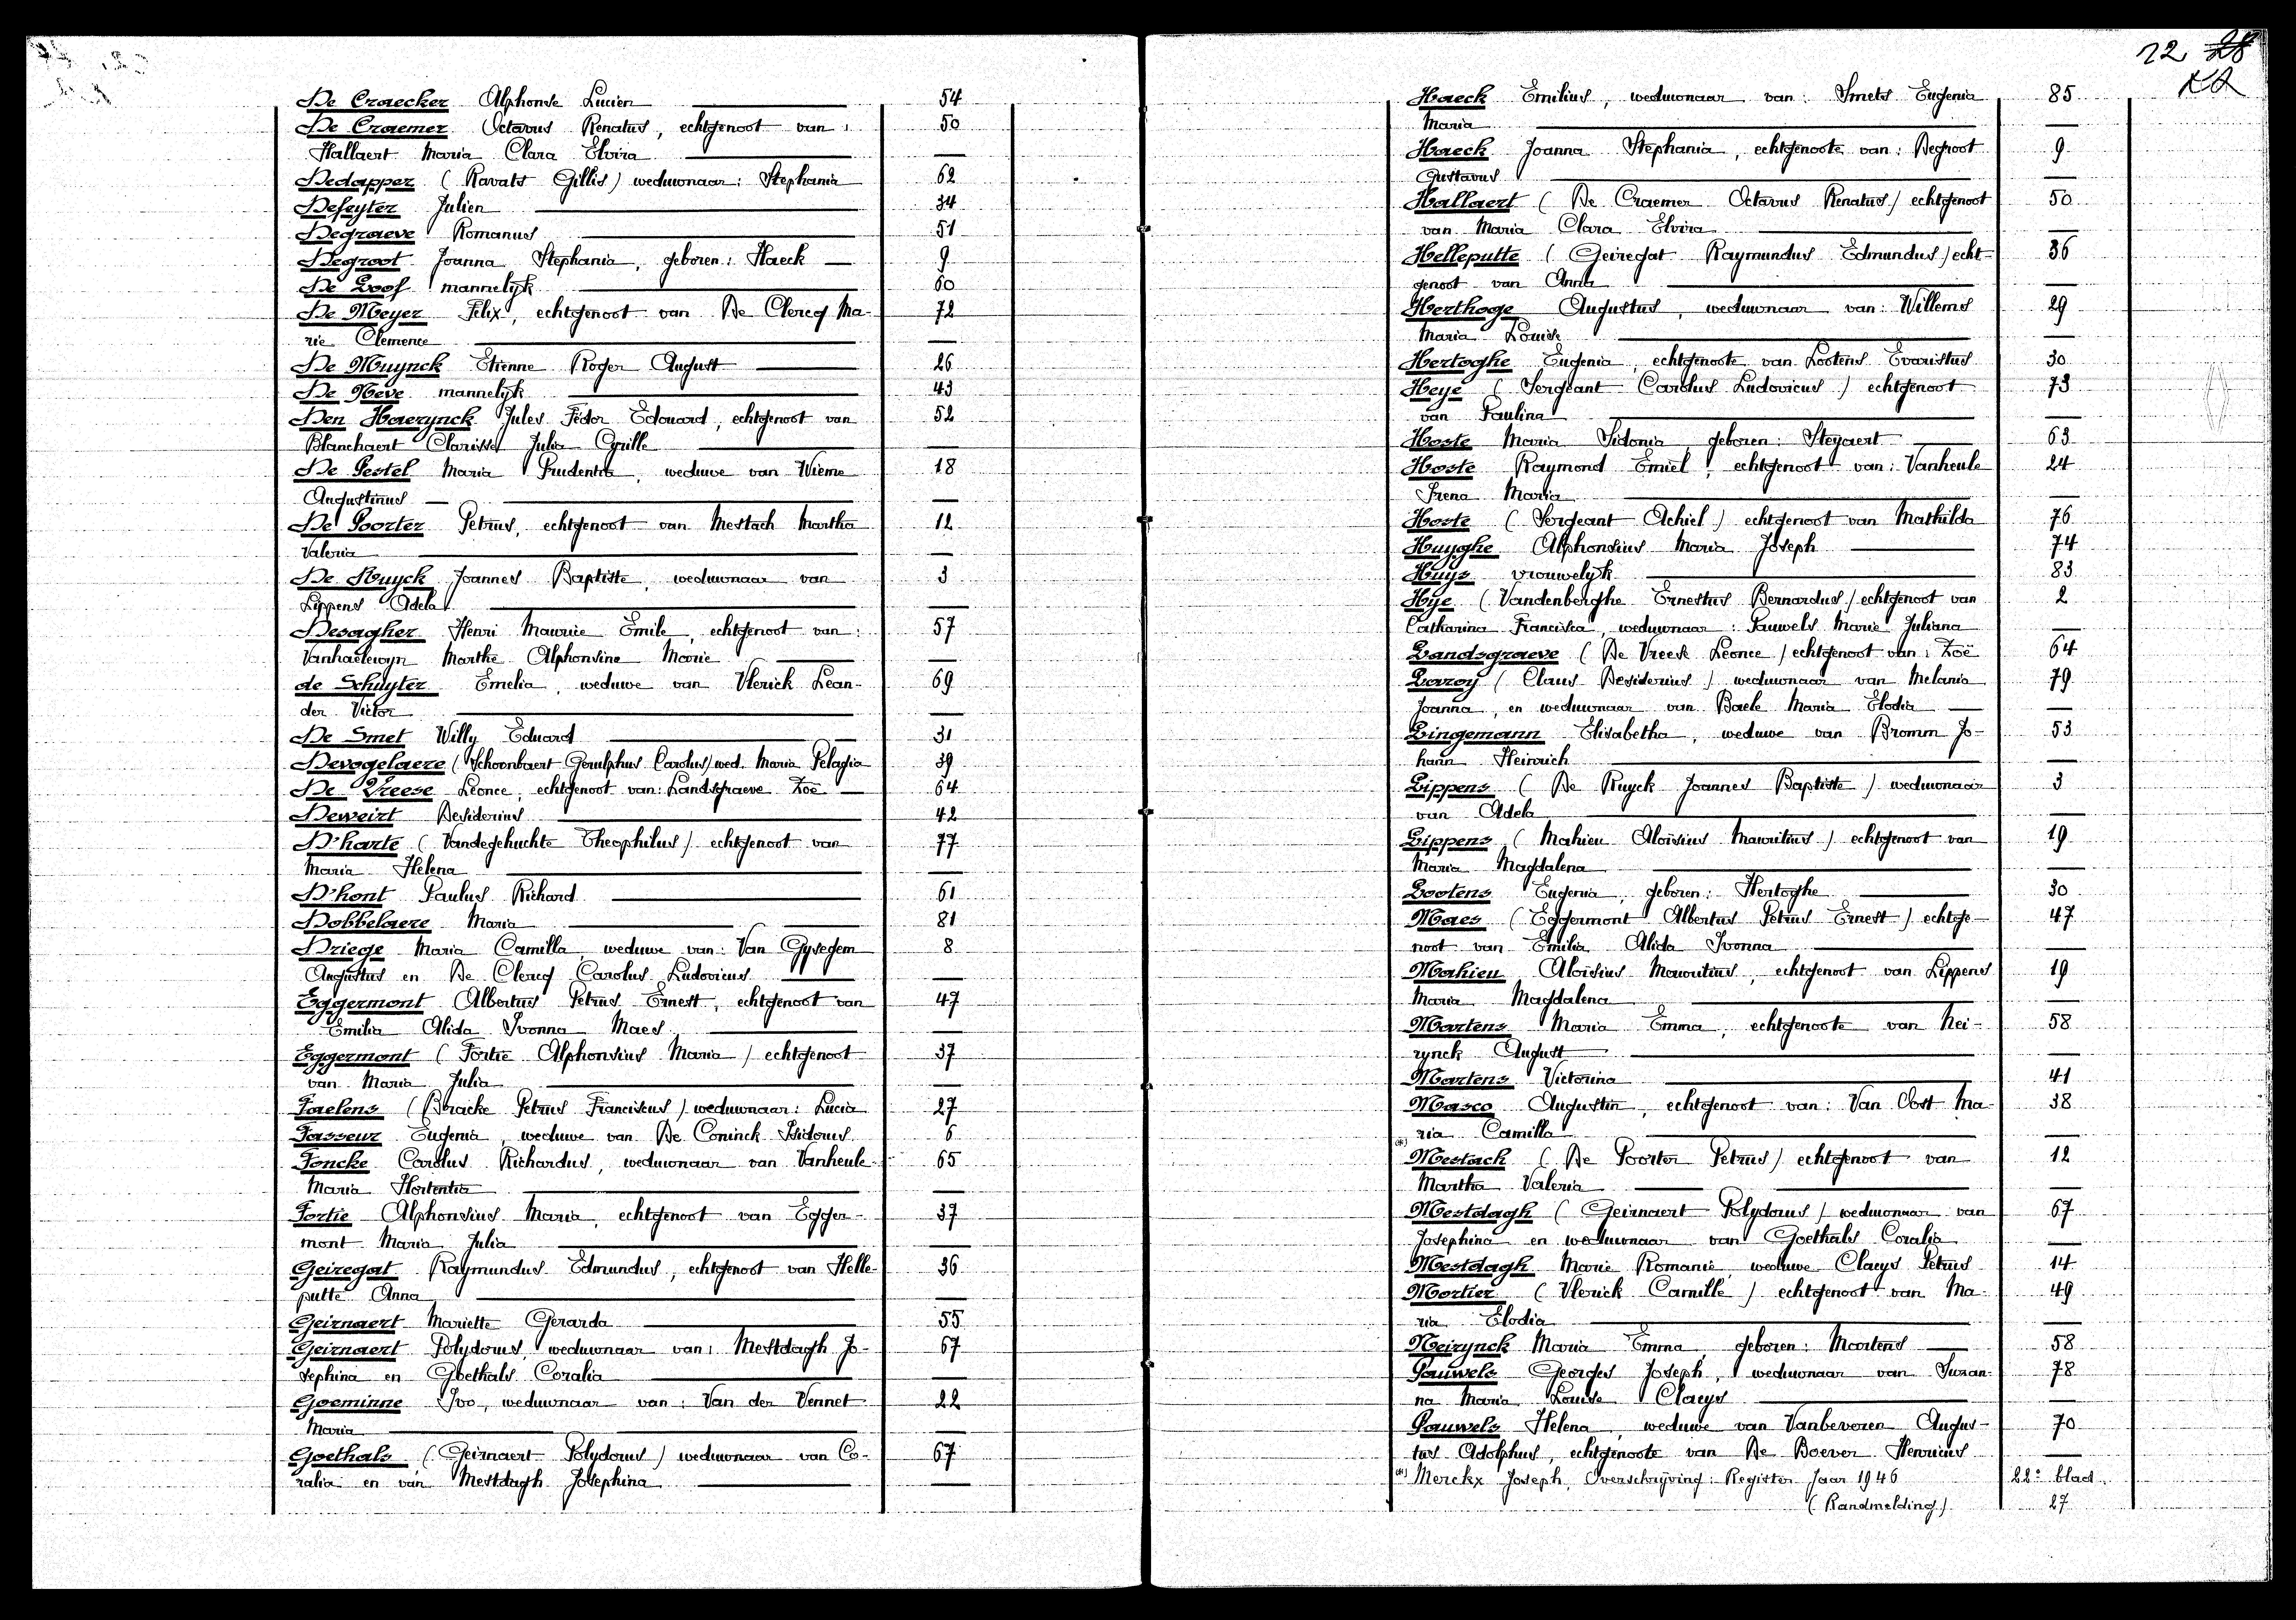 De Craecker Alphonse Lucien 54
De Craemer Octavus Renatus, echtgenoot van: 50
Hallaert Maria Clara Elvira
Dedapper (Ravats Gillis) weduwnaar: Stephania 62
Defeyter Julien 34
Degraeve Romanus 51
Degroot Joanna Stephania, geboren: Haeck 9
De Loof mannelyk 60
De Meyer Felix, echtgenoot van De Clercq Ma- 72
rie Clemence
De Muynck Etienne Roger August 26
De Neve mannelyk 43
Den Haerynck Jules Fédor Edouard, echtgenoot van 52
Blanchaert Clarisse Julia Cyrille
De Pestel Maria Prudentia, weduwe van Wieme 18
Augustinus
De Poorter Petrus, echtgenoot van Mestach Martha 12
Valeria
De Ruyck Joannes Baptiste, weduwnaar van 3
Lippens Adela
Desagher Henri Maurice Emile, echtgenoot van: 57
Vanhaelewyn Marthe Alphonsine Marie
de Schuyter Emelia, weduwe van Vlerick Lean- 69
der Victor
De Smet Willy Eduard 31
Devogelaere (Schoonbaert Gerulphus Carolus) wed. Maria Pelagia 39
De Vreese Leonce, echtgenoot van: Landsgraeve Zoë 64
Deweirt Desiderius 42
D'harte (Vandegehuchte Theophilus) echtgenoot van 77
Maria Helena
D'hont Paulus Richard 61
Dobbelaere Maria 81
Driege Maria Camilla, weduwe van: Van Gysegem 8
Augustus en De Clercq Carolus Ludovicus
Eggermont Albertus Petrus Ernest, echtgenoot van 47
Emilia Alida Ivonna Maes
Eggermont (Fortie Alphonsius Maria) echtgenoot 37
van Maria Julia
Faelens (Bracke Petrus Franciscus) weduwnaar: Lucia 27
Fasseur Eugenia, weduwe van De Coninck Isidorus 6
Foncke Carolus Richardus, weduwnaar van Vanheule 65
Maria Hortentia
Fortie Alphonsius Maria, echtgenoot van Egger- 37
mont Maria Julia
Geiregat Raymundus Edmundus, echtgenoot van Helle- 36
putte Anna
Geirnaert Mariette Gerarda 55
Geirnaert Polydorus, weduwnaar van: Mestdagh Jo- 67
sephina en Goethals Coralia
Goeminne Ivo, weduwnaar van: Van der Vennet 22
Maria
Goethals (Geirnaert Polydorus) weduwnaar van Co- 67
ralia en van Mestdagh Josephina
22 28
Haeck Emilius, weduwnaar van: Smets Eugenia 85
Maria
Haeck Joanna Stephania, echtgenoote van: Degroot 9
Gustavus
Hallaert (De Craemer Octavus Renatus) echtgenoot 50
van Maria Clara Elvira
Helleputte (Geiregat Raymundus Edmundus) echt- 36
genoot van Anna
Herthoge Augustus, weduwnaar van: Willems 29
Maria Louise
Hertoghe Eugenia, echtgenoote van Lootens Evaristus 30
Heye (Sergeant Carolus Ludovicus) echtgenoot 73
van Paulina
Hoste Maria Sidonia, geboren: Steyaert 63
Hoste Raymond Emiel, echtgenoot van: Vanheule 24
Irena Maria
Hoste (Sergeant Achiel) echtgenoot van Mathilda 76
Huyghe Alphonsius Maria Joseph 74
Huys vrouwelyk 83
Hye (Vandenberghe Ernestus Bernardus) echtgenoot van 2
Catharina Franciska, weduwnaar: Pauwels Marie Juliana
Landsgraeve (De Vreese Leonce) echtgenoot van: Zoë 64
Laroy (Claus Desiderius) weduwnaar van Melania 79
Joanna, en weduwnaar van Baele Maria Elodia
Lingemann Elisabetha, weduwe van Bromm Jo- 53
hann Heinrich
Lippens (De Ruyck Joannes Baptiste) weduwnaar 3
van Adela
Lippens (Mahieu Aloïsius Mauritius) echtgenoot van 19
Maria Magdalena
Lootens Eugenia, geboren: Hertoghe 30
Maes (Eggermont Albertus Petrus Ernest) echtge- 47
noot van Emilia Alida Ivonna
Mahieu Aloïsius Mauritius, echtgenoot van Lippens 19
Maria Magdalena
Martens Maria Emma, echtgenoote van Nei- 58
rynck August
Martens Victorina 41
Masco Augustin, echtgenoot van: Van Oost Ma- 38
ria Camilla
Mestach (De Poorter Petrus) echtgenoot van 12
Martha Valeria
Mestdagh (Geirnaert Polydorus) weduwnaar van 67
Josephina en weduwnaar van Goethals Coralia
Mestdagh Marie Romanie weduwe Claeys Petrus 14
Mortier (Vlerick Camille) echtgenoot van Ma- 49
ria Elodia
Neirynck Maria Emma, geboren: Martens 58
Pauwels Georges Joseph, weduwnaar van Suzan- 78
na Maria Louise Claeys
Pauwels Helena, weduwe van Vanbeveren Augus- 70
tus Adolphus, echtgenoote van De Boever Henricus
Merckx Joseph. Overschryving: Register Jaar 1946 22e blad
(Randmelding) 27